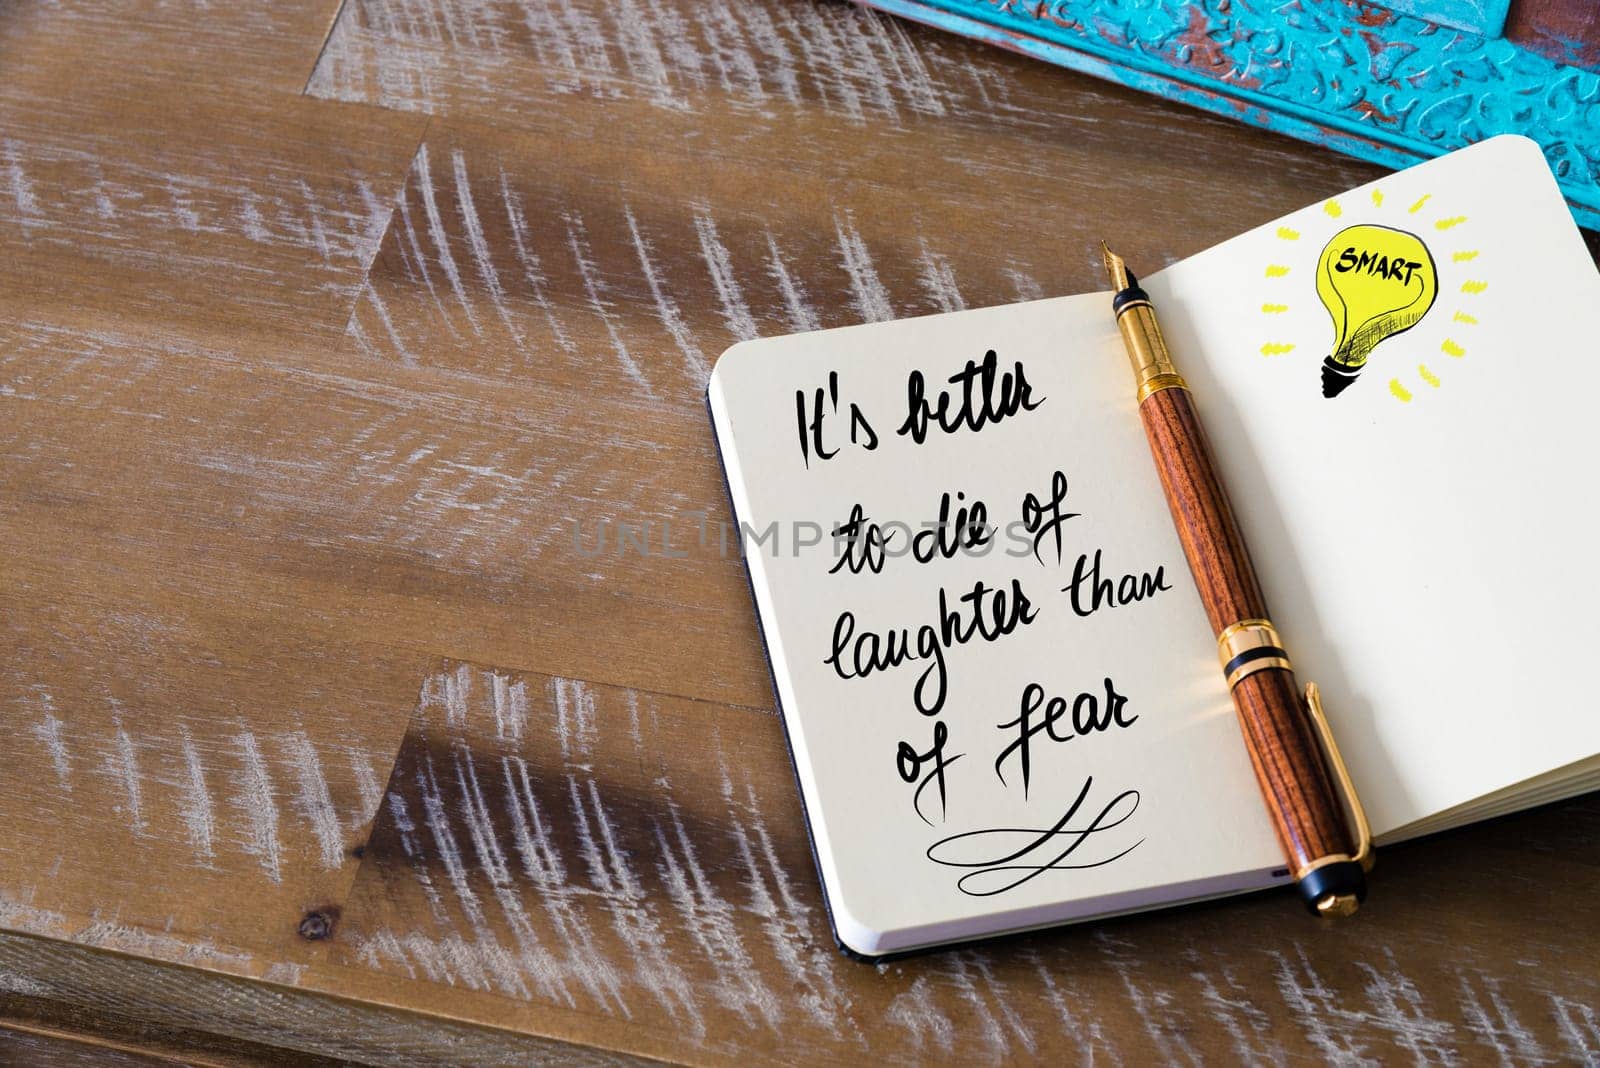 SMART
It's better
to die of
laughter than
of fear
UNLIMPHOTOS